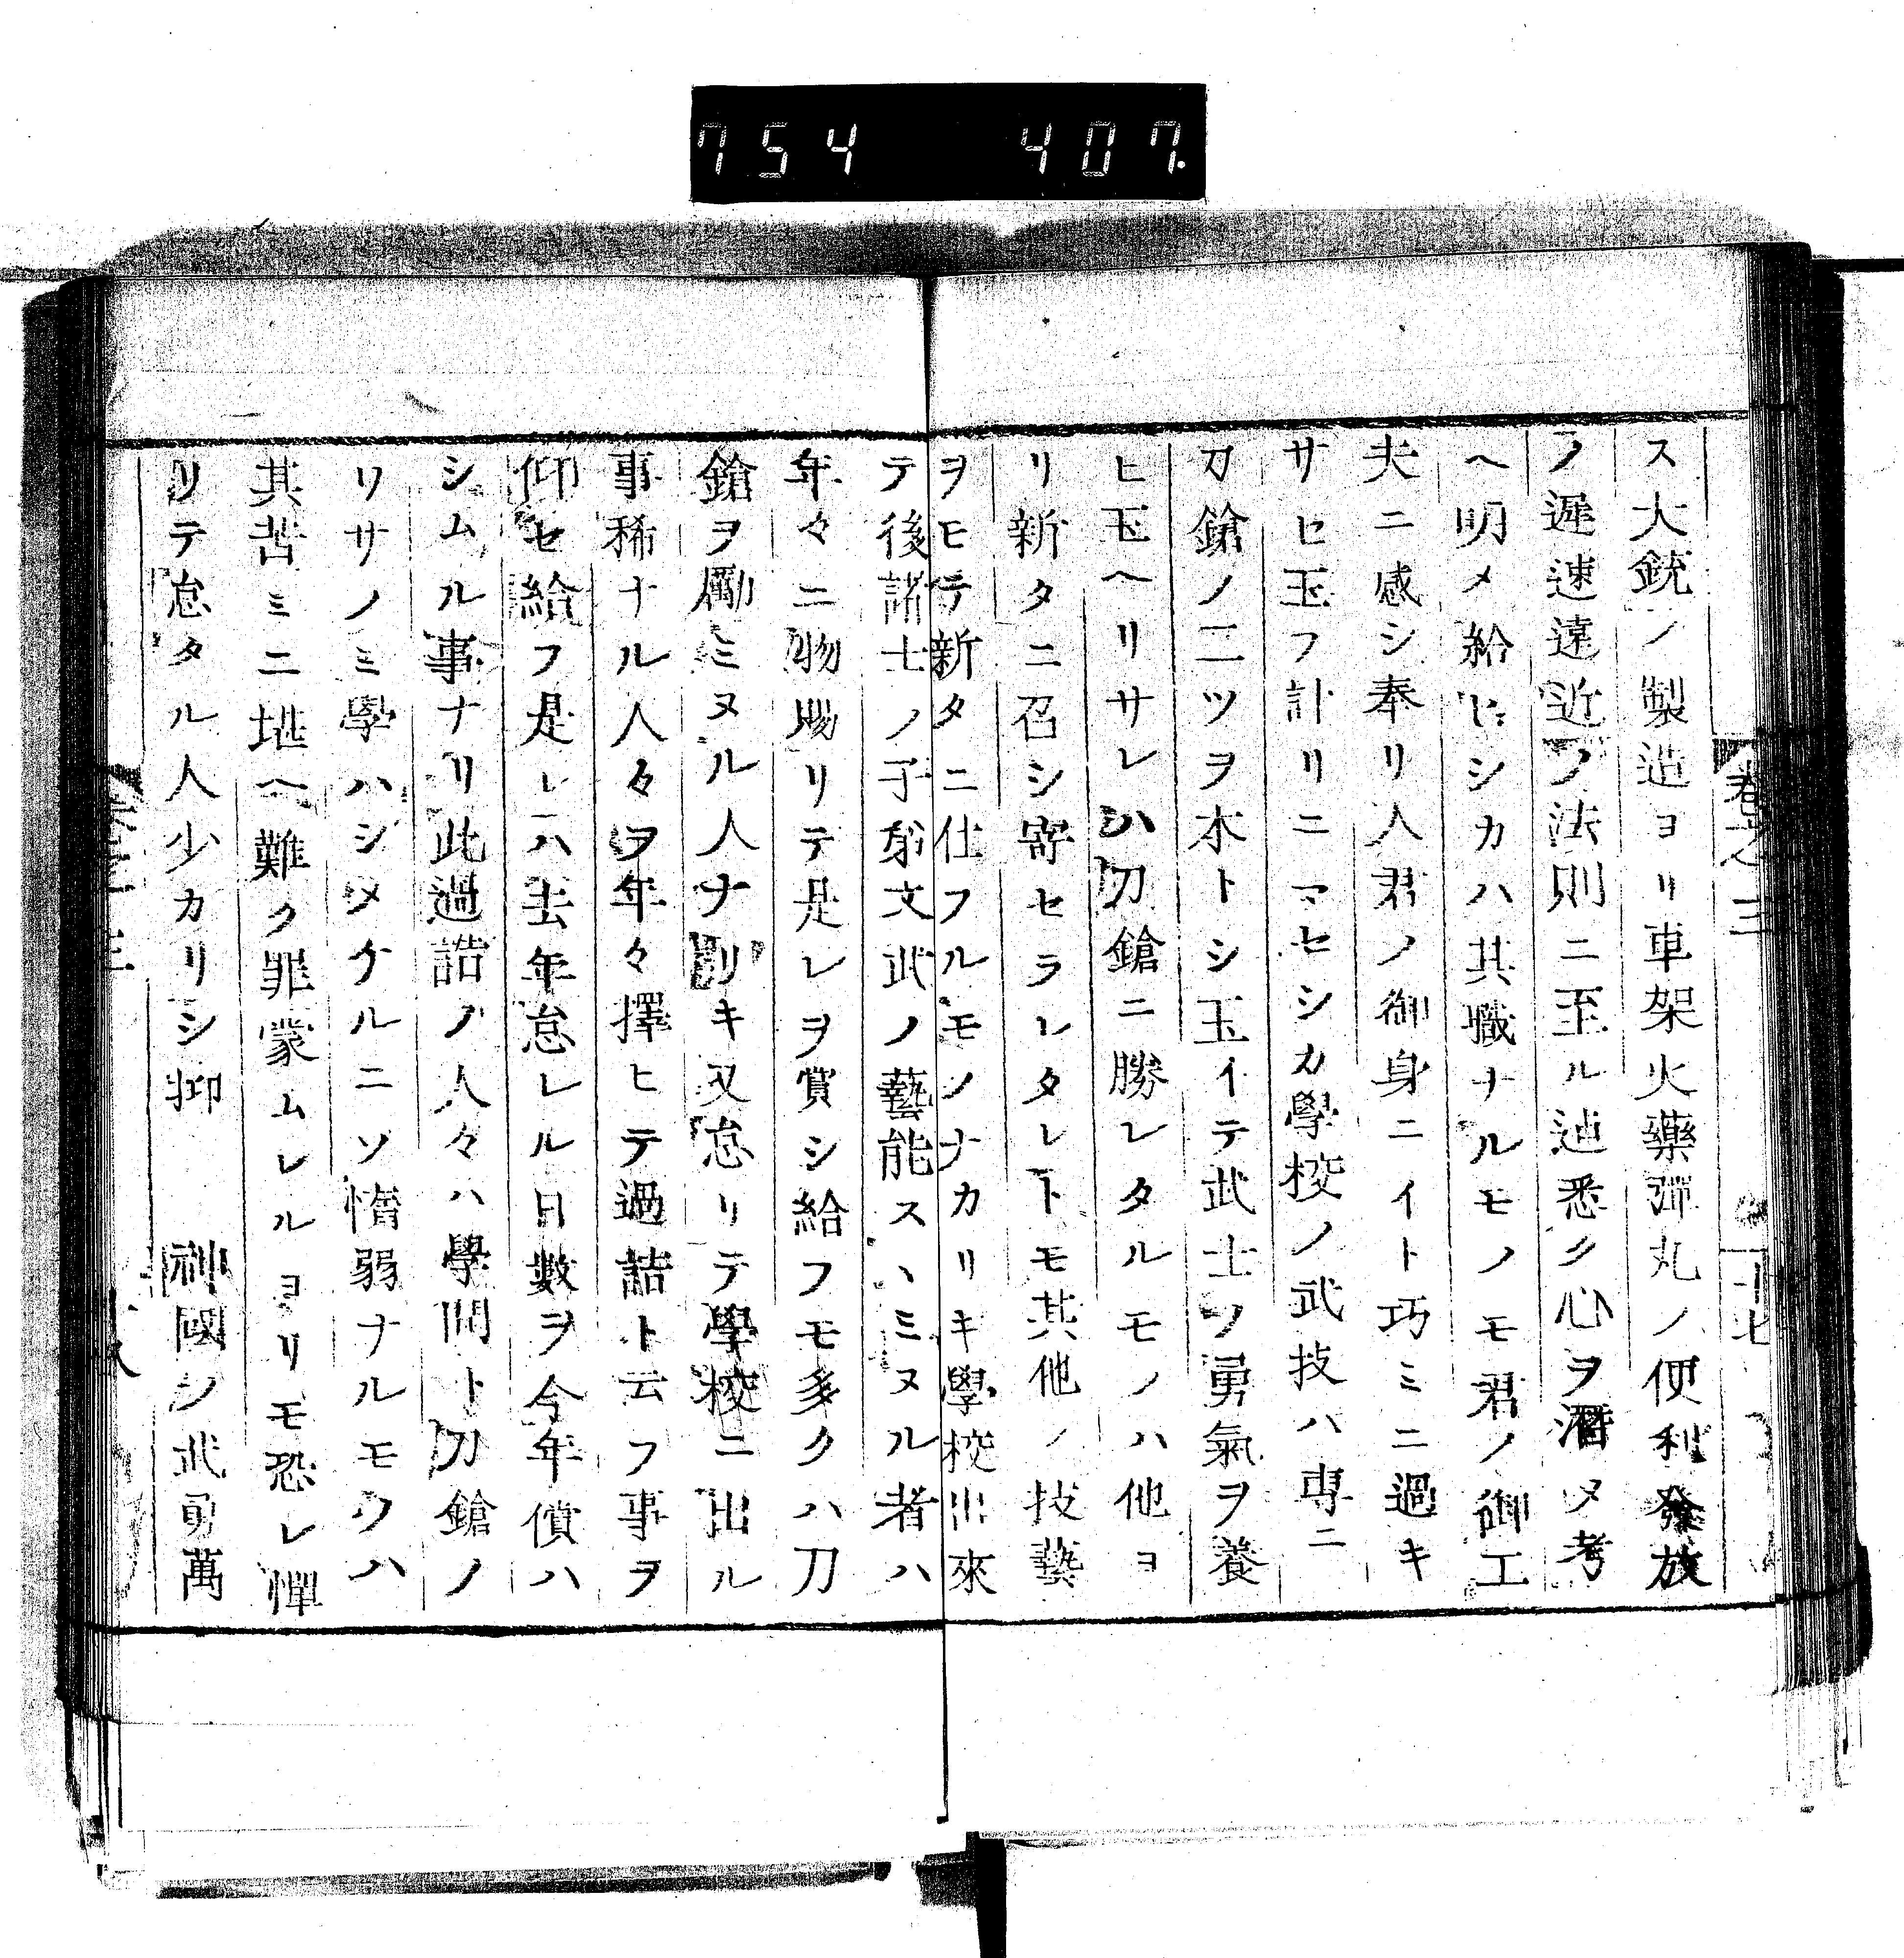 754 407.
卷之三
十七
ス大銃ノ製造ヨリ車架火藥彈丸ノ便利發放
ノ遲速遠近ノ法則ニ至ル迠悉ク心ヲ潛メ考
ヘ明メ給ヒシカハ其職ナルモノモ君ノ御工
夫ニ感シ奉リ人君ノ御身ニイト巧ミニ過キ
サセ玉フ計リニマセシカ學校ノ武技ハ専ニ
刀鎗ノ二ツヲ本トシ玉イテ武士ノ勇氣ヲ養
ヒ玉ヘリサレハ刀鎗ニ勝レタルモノハ他ヨ
リ新タニ召シ寄セラレタレトモ其他ノ技藝
ヲモテ新タニ仕フルモノナカリキ學校出來
テ後諸士ノ子弟文武ノ藝能スヽミヌル者ハ
年々ニ物賜リテ是レヲ賞シ給フモ多クハ刀
鎗ヲ勵ミヌル人ナリキ又怠リテ學校ニ出ル
事稀ナル人々ヲ年々擇ヒテ過詰ト云フ事ヲ
仰セ給フ是レハ去年怠レル日數ヲ今年償ハ
シムル事ナリ此過詰ノ人々ハ學問ト刀鎗ノ
リサノミ學ハシメケルニソ惰弱ナルモウハ
其苦ミニ堪ヘ難ク罪蒙ムレルヨリモ恐レ憚
リテ怠タル人少カリシ抑 神國ノ武勇萬